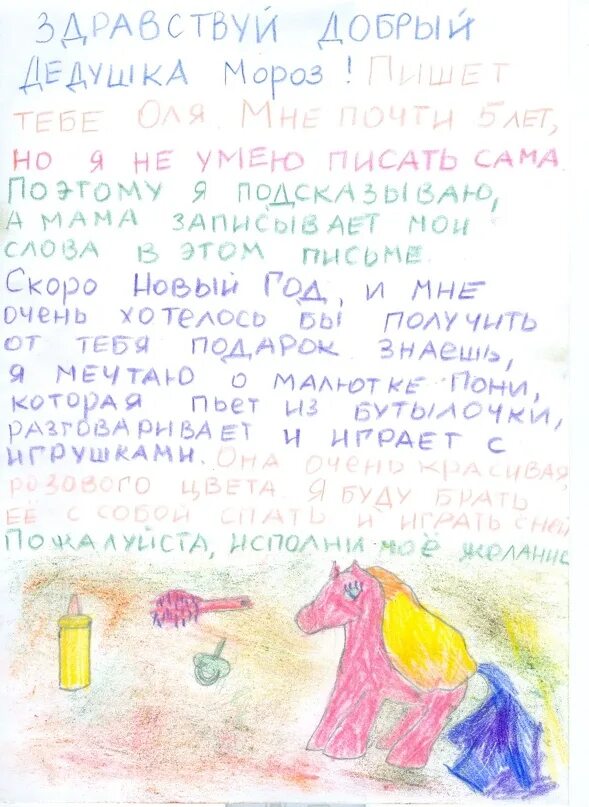 Здравствуй добрый
Дедушка Мороз! Пишет
тебе Оля. Мне почти 5 лет,
но я не умею писать сама
Поэтому я подсказываю,
а мама записывает мои
слова в этом письме.
Скоро Новый Год, и мне
очень хотелось бы получить
от тебя подарок. Знаешь,
я мечтаю о малютке Пони,
которая пьет из бутылочки,
разговаривает и играет с
игрушками. Она очень красивая,
розового цвета. Я буду брать
её с собой спать и играть с ней
Пожалуйста, исполни моё желание